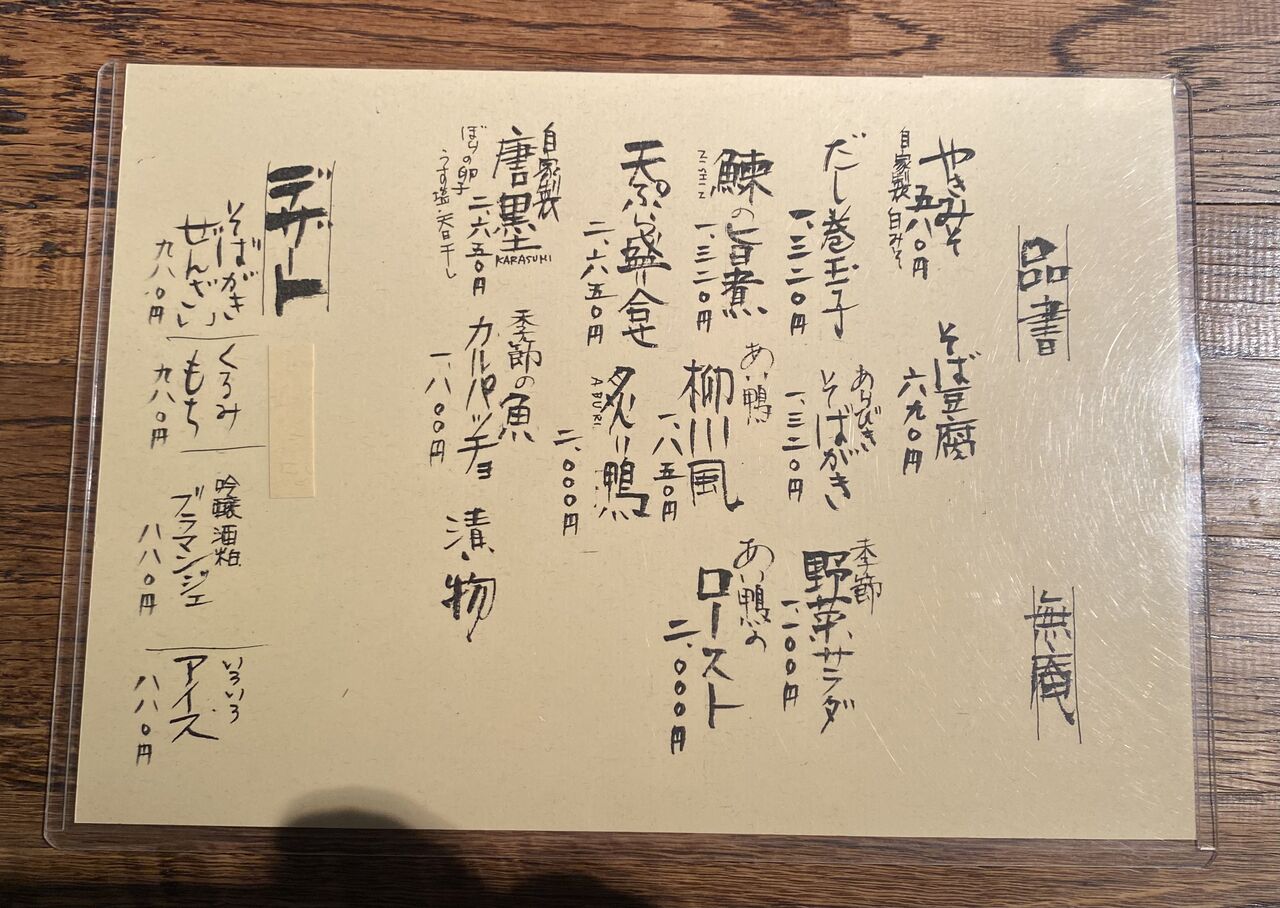 品書
無庵
やきみそ
自家製 白みそ
五八〇円
そば豆腐
六九〇円
だし巻玉子
一、三二〇円
あらびき
そばがき
一、三二〇円
季節
野菜サラダ
一、二〇〇円
鰊の旨煮
ニシン
一、三二〇円
あい鴨
柳川風
一、八五〇円
あい鴨の
ロースト
二、〇〇〇円
天ぷら盛合せ
二、六五〇円
炙り鴨
ABURI
二、〇〇〇円
自家製
唐墨
KARASUMI
二、六五〇円
ぼらの卵子
うす塩・天日干し
季節の魚
カルパッチョ
一、八〇〇円
漬物
デザート
そばがき
ぜんざい
九八〇円
くるみ
もち
九八〇円
吟醸酒粕
ブラマンジェ
八八〇円
いろいろ
アイス
八八〇円